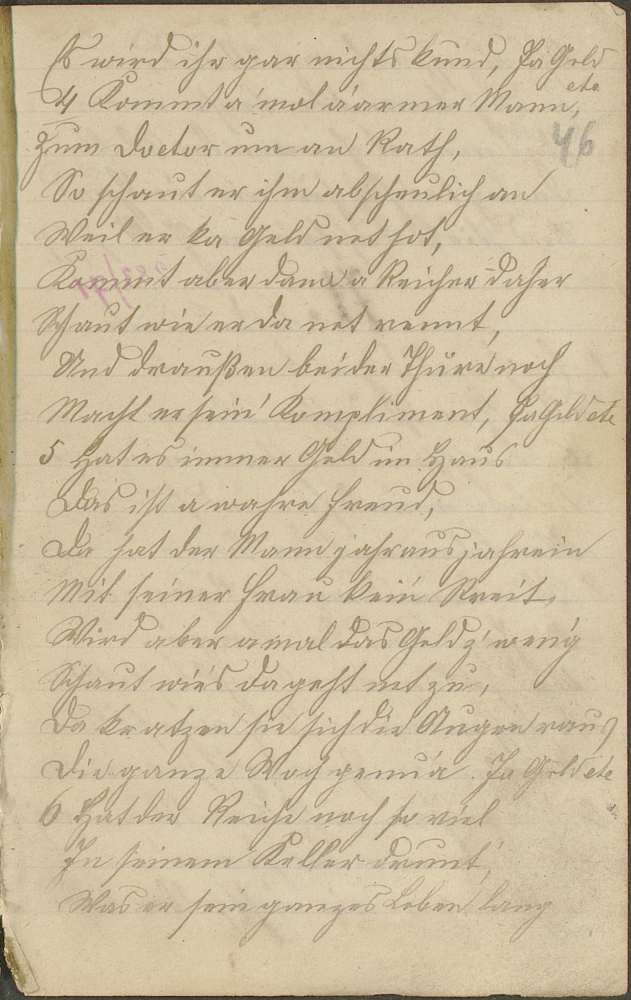 Es wird ihr gar nichts kund, Ja Geld etc
4 Kommt a'mol a armer Mann,
46
Zum Doctor um an Rath,
So schaut er ihm abscheulich an
Weil er ka Geld net hot,
Kommt aber dann a Reicher daher
Schaut wie er da net rennt,
Und draußen bei der Thüre noch
Macht er sein' Kompliment, Ja Geld etc
5 Hat es immer Geld im Haus
Das ist a wahre Freud,
Da hat der Mann jahraus jahrein
Mit seiner Frau kein Streit,
Wird aber amal das Geld z' wenig
Schaut wie's da geht net zu,
Da kratzen sie sich die Augen raus
Die ganze Woch genua. Ja Geld etc
6 Hat der Reiche noch so viel
In seinem Keller drunt',
Was er sein ganzes Leben lang